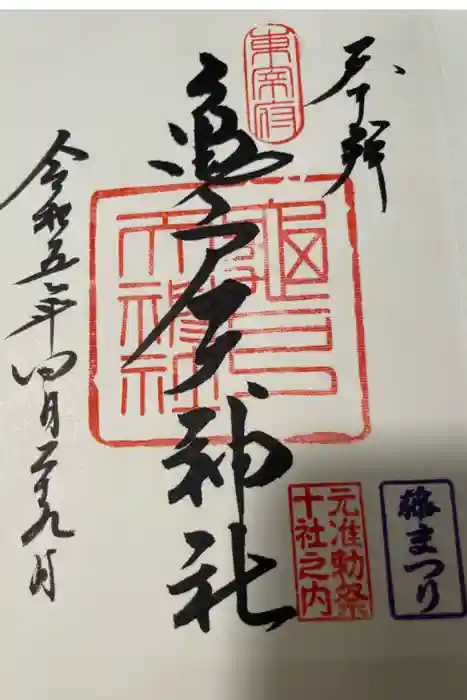 奉拝
東宰府
亀戸天神社
龜戸
天神社
元准勅祭
十社之内
藤まつり
令和五年四月二十九日